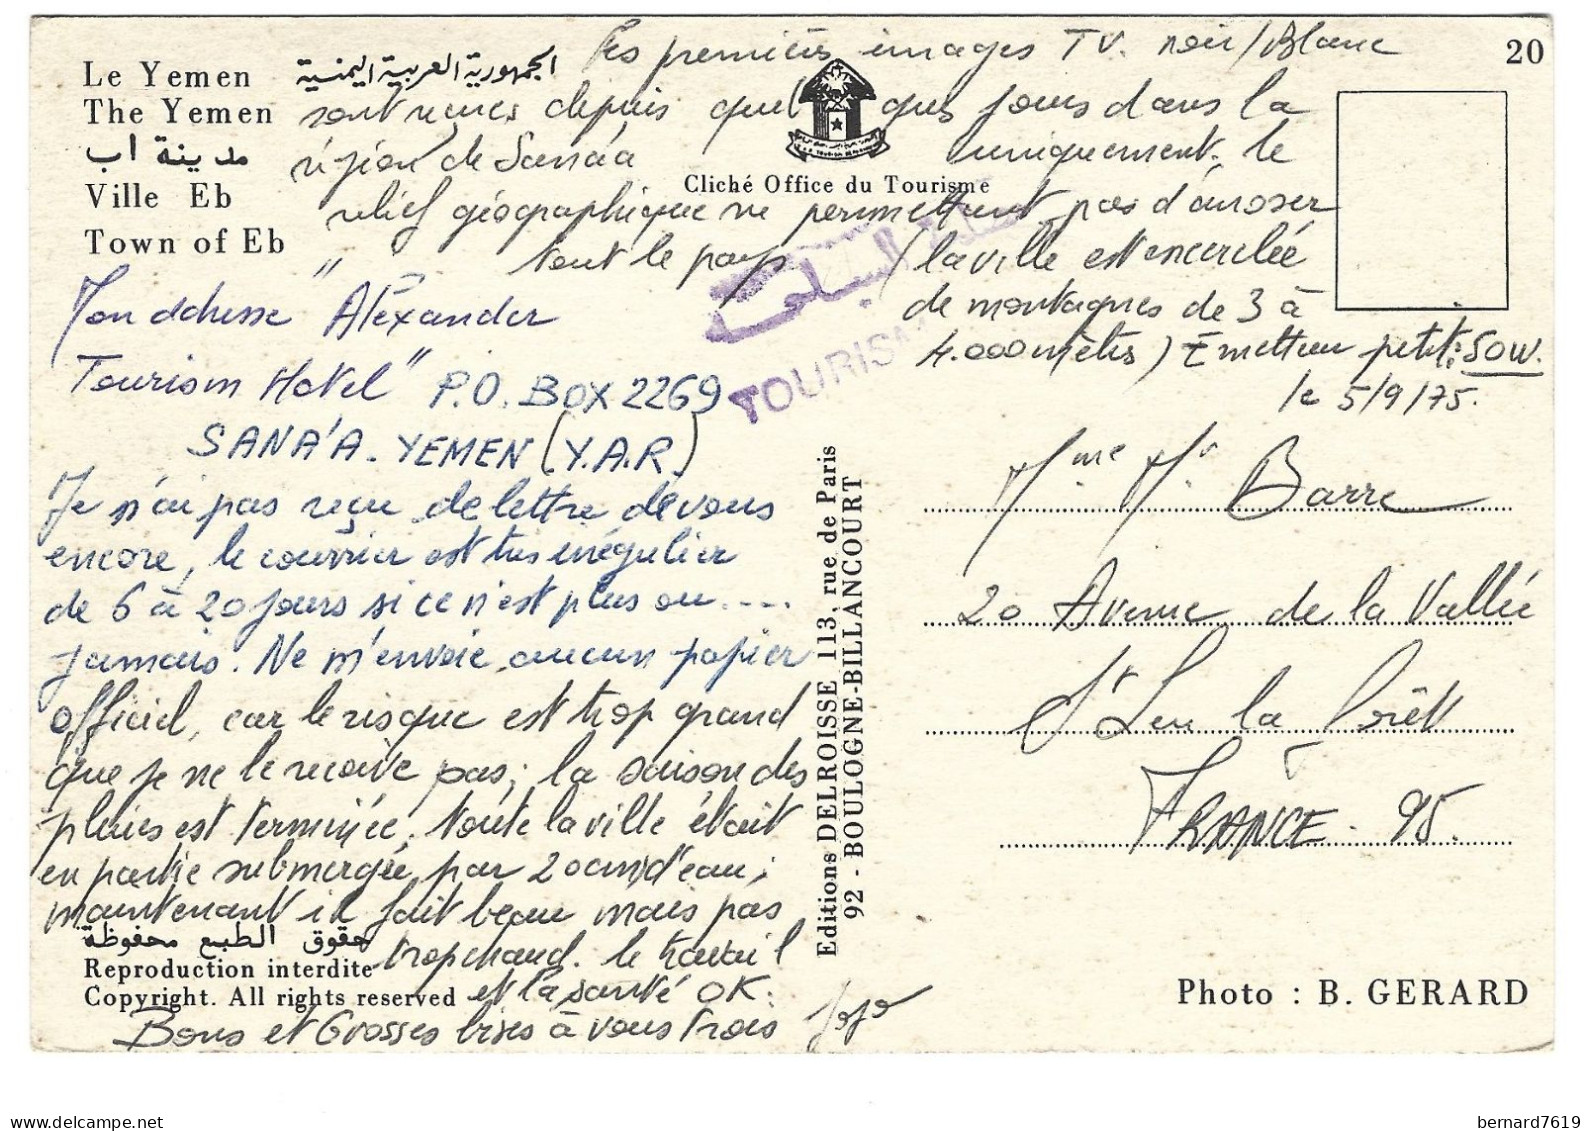 Les premières images TV. noir/Blanc
20
Le Yemen
الجمهورية العربية اليمنية
The Yemen
sont reçues depuis quelques jours dans la
مدينة اب
région de Sanáa uniquement. le
Ville Eb
Cliché Office du Tourisme
relief géographique ne permettant pas d'arroser
Town of Eb
tout le pays (la ville est encerclée
de montagnes de 3 à
4.000 mètres) Emetteur petit: 50W.
le 5/9/75.
TOURISM
Mon adresse "Aléxander
Tourism Hotel" P.O. BOX 2269
SANA'A. YEMEN (Y.A.R)
Je n'ai pas reçu de lettre de vous
encore, le courrier est très irrégulier
de 6 à 20 jours si ce n'est plus ou ....
jamais. Ne m'envoie aucun papier
officiel, car le risque est trop grand
que je ne le reçoive pas; la saison des
pluies est terminée. toute la ville était
en partie submergée par 20cm d'eau;
maintenant il fait beau mais pas
trop chaud. le travail
et la santé OK.
Bons et Grosses bises à vous trois
Jojo
حقوق الطبع محفوظة
Reproduction interdite
Copyright. All rights reserved
Editions DELROISSE 113, rue de Paris
92 - BOULOGNE-BILLANCOURT
Mme Mr Barre
20 Avenue de la Vallée
St Leu la Forêt
FRANCE. 95.
Photo : B. GERARD
bernard7619